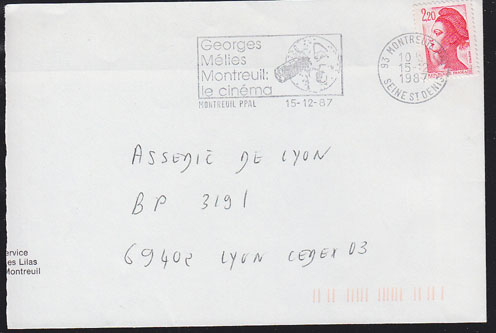 Georges
Méliès
Montreuil:
le cinéma
MONTREUIL PPAL 15-12-87
2,20
93 MONTREUIL
15-12
1987
SEINE ST DENIS
ASSEDIC DE LYON
BP 3191
69402 LYON CEDEX 03
ervice
es Lilas
Montreuil